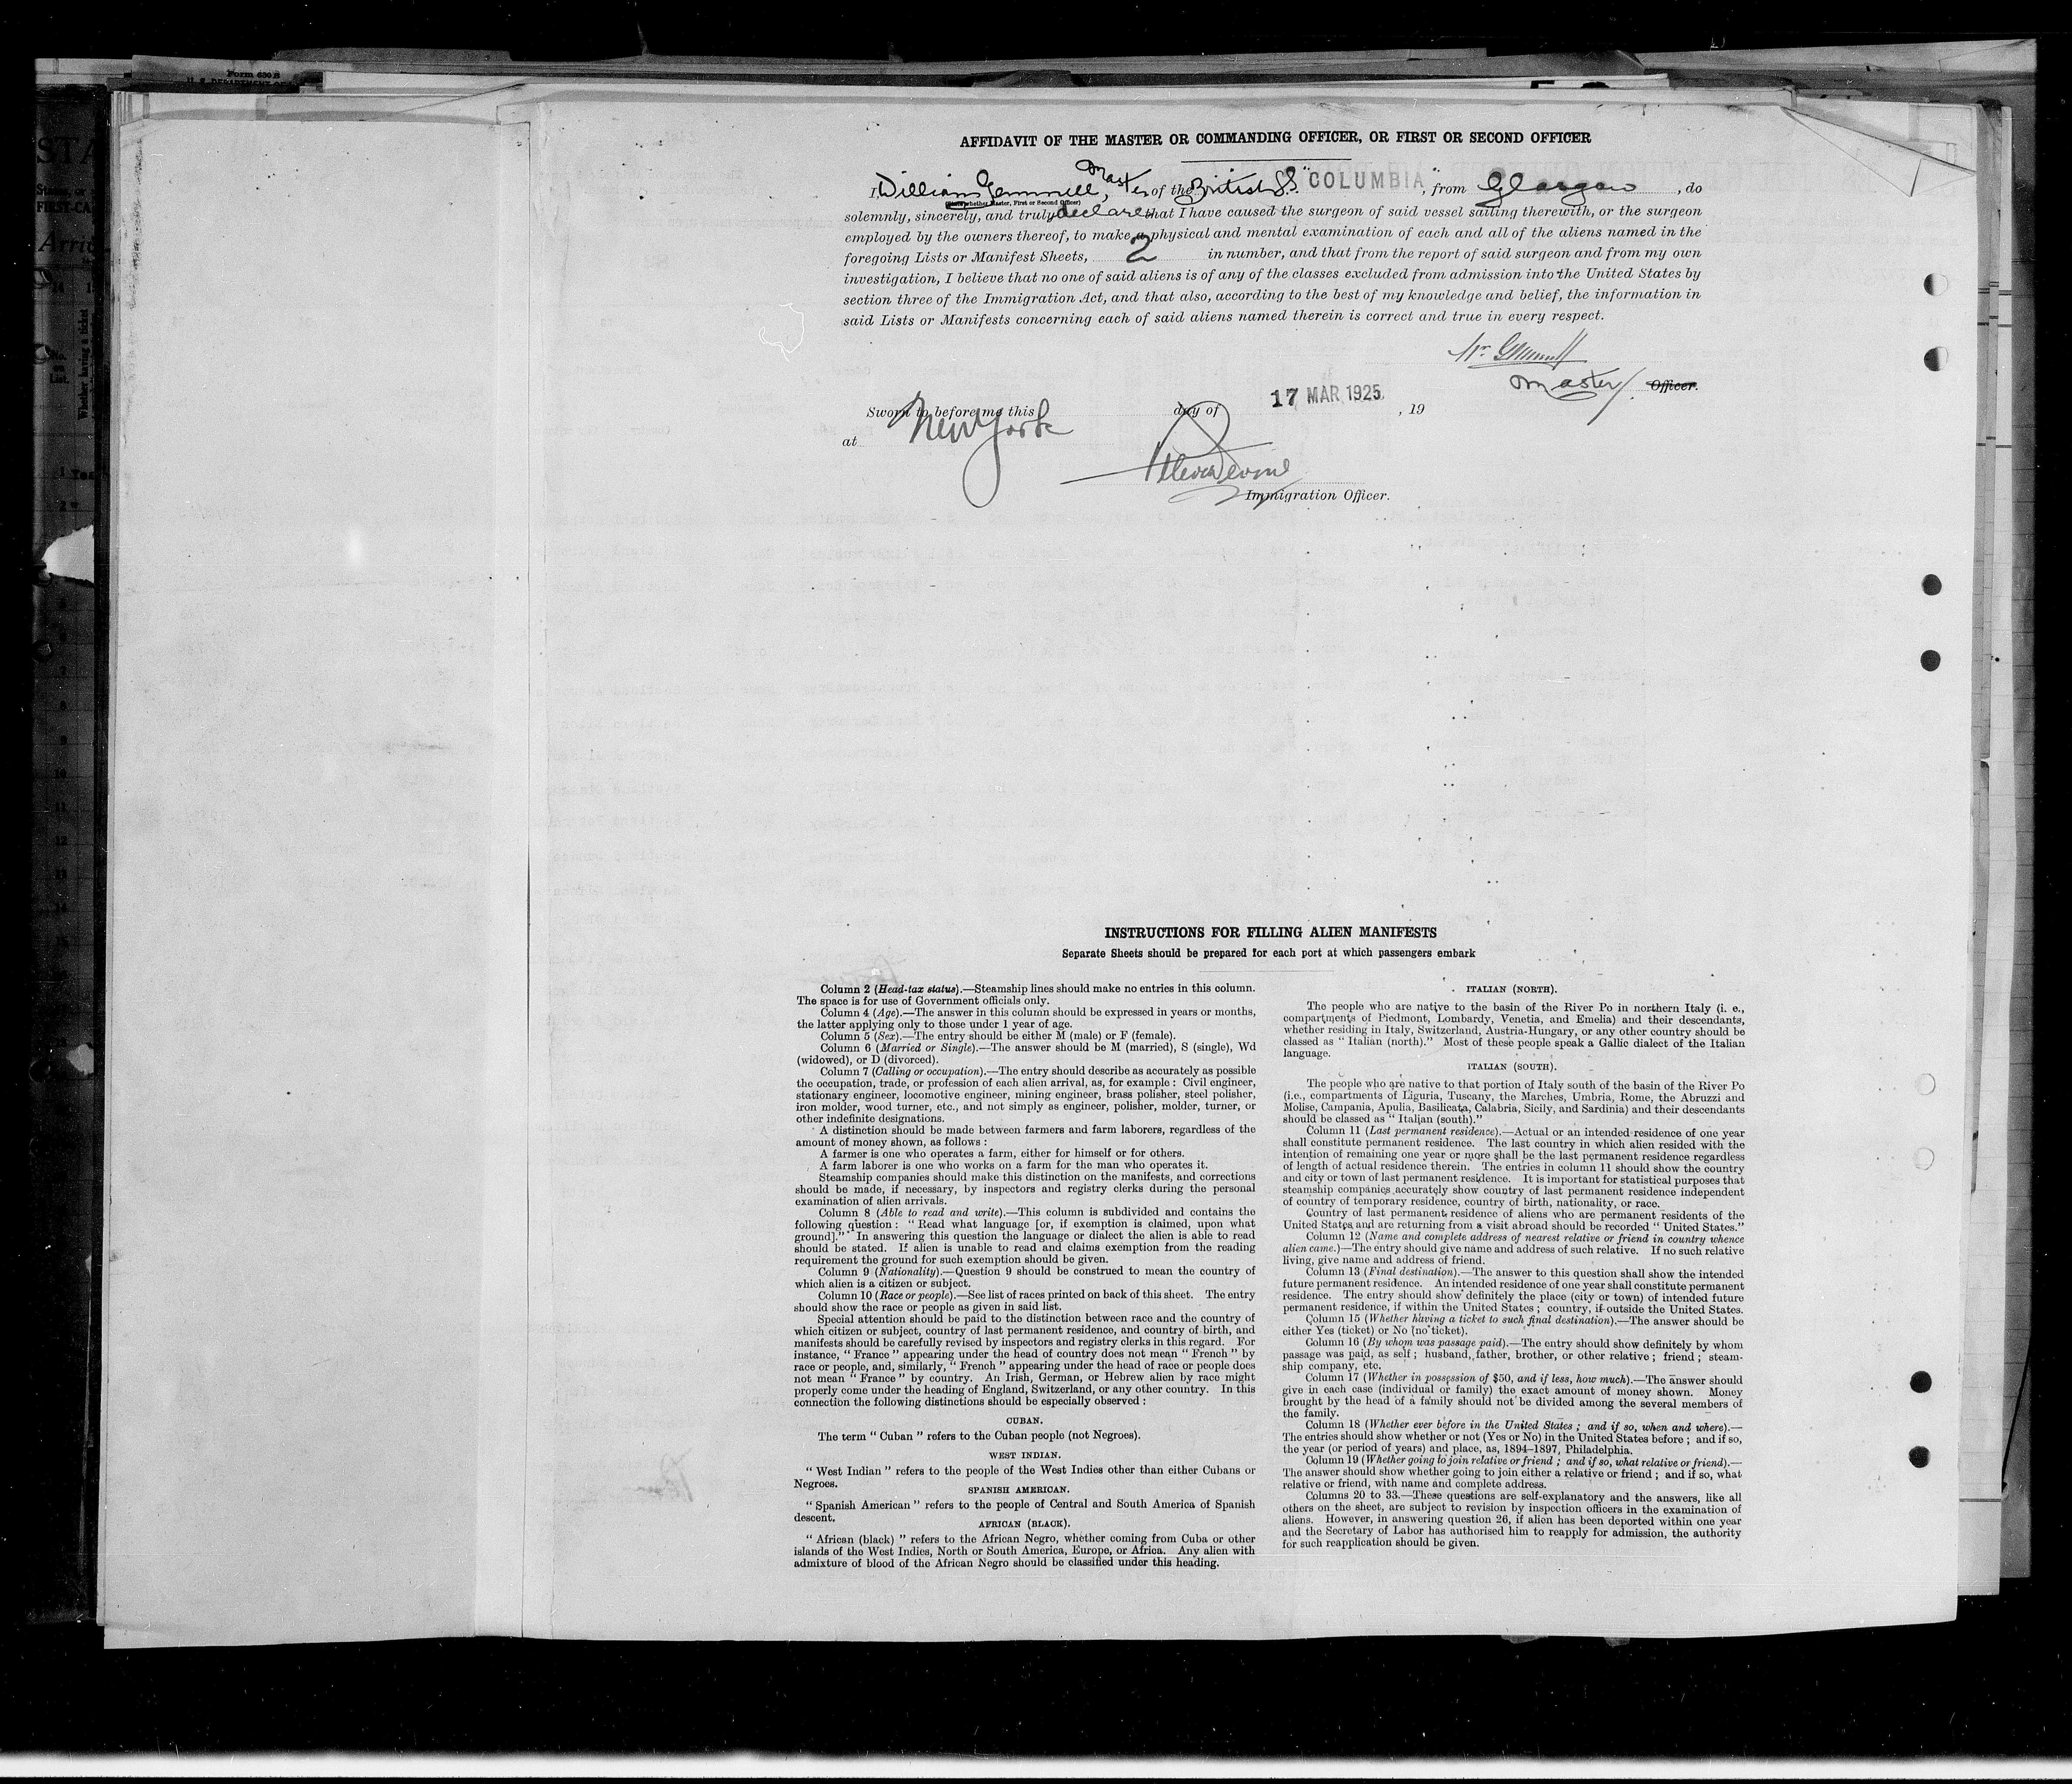 Form 630 B
STA
FIRST-CA
Arri
No.
on
List.
Whether having a ticket
AFFIDAVIT OF THE MASTER OR COMMANDING OFFICER, OR FIRST OR SECOND OFFICER
I, William Gemmell, Master of the British SS. "COLUMBIA", from Glasgow, do
(State whether Master, First or Second Officer)
solemnly, sincerely, and truly declare that I have caused the surgeon of said vessel sailing therewith, or the surgeon
employed by the owners thereof, to make a physical and mental examination of each and all of the aliens named in the
foregoing Lists or Manifest Sheets, 2 in number, and that from the report of said surgeon and from my own
investigation, I believe that no one of said aliens is of any of the classes excluded from admission into the United States by
section three of the Immigration Act, and that also, according to the best of my knowledge and belief, the information in
said Lists or Manifests concerning each of said aliens named therein is correct and true in every respect.
Wm. Gemmell
Master. Officer.
Sworn to before me this day of 17 MAR 1925, 19
at New York
Immigration Officer.
INSTRUCTIONS FOR FILLING ALIEN MANIFESTS
Separate Sheets should be prepared for each port at which passengers embark
Column 2 (Head-tax status).—Steamship lines should make no entries in this column.
The space is for use of Government officials only.
Column 4 (Age).—The answer in this column should be expressed in years or months,
the latter applying only to those under 1 year of age.
Column 5 (Sex).—The entry should be either M (male) or F (female).
Column 6 (Married or Single).—The answer should be M (married), S (single), Wd
(widowed), or D (divorced).
Column 7 (Calling or occupation).—The entry should describe as accurately as possible
the occupation, trade, or profession of each alien arrival, as, for example : Civil engineer,
stationary engineer, locomotive engineer, mining engineer, brass polisher, steel polisher,
iron molder, wood turner, etc., and not simply as engineer, polisher, molder, turner, or
other indefinite designations.
A distinction should be made between farmers and farm laborers, regardless of the
amount of money shown, as follows :
A farmer is one who operates a farm, either for himself or for others.
A farm laborer is one who works on a farm for the man who operates it.
Steamship companies should make this distinction on the manifests, and corrections
should be made, if necessary, by inspectors and registry clerks during the personal
examination of alien arrivals.
Column 8 (Able to read and write).—This column is subdivided and contains the
following question : " Read what language [or, if exemption is claimed, upon what
ground]." In answering this question the language or dialect the alien is able to read
should be stated. If alien is unable to read and claims exemption from the reading
requirement the ground for such exemption should be given.
Column 9 (Nationality).—Question 9 should be construed to mean the country of
which alien is a citizen or subject.
Column 10 (Race or people).—See list of races printed on back of this sheet. The entry
should show the race or people as given in said list.
Special attention should be paid to the distinction between race and the country of
which citizen or subject, country of last permanent residence, and country of birth, and
manifests should be carefully revised by inspectors and registry clerks in this regard. For
instance, " France " appearing under the head of country does not mean " French " by
race or people, and, similarly, " French " appearing under the head of race or people does
not mean " France " by country. An Irish, German, or Hebrew alien by race might
properly come under the heading of England, Switzerland, or any other country. In this
connection the following distinctions should be especially observed :
CUBAN.
The term " Cuban " refers to the Cuban people (not Negroes).
WEST INDIAN.
" West Indian " refers to the people of the West Indies other than either Cubans or
Negroes.
SPANISH AMERICAN.
" Spanish American " refers to the people of Central and South America of Spanish
descent.
AFRICAN (BLACK).
" African (black) " refers to the African Negro, whether coming from Cuba or other
islands of the West Indies, North or South America, Europe, or Africa. Any alien with
admixture of blood of the African Negro should be classified under this heading.
ITALIAN (NORTH).
The people who are native to the basin of the River Po in northern Italy (i. e.,
compartments of Piedmont, Lombardy, Venetia, and Emelia) and their descendants,
whether residing in Italy, Switzerland, Austria-Hungary, or any other country should be
classed as " Italian (north)." Most of these people speak a Gallic dialect of the Italian
language.
ITALIAN (SOUTH).
The people who are native to that portion of Italy south of the basin of the River Po
(i.e., compartments of Liguria, Tuscany, the Marches, Umbria, Rome, the Abruzzi and
Molise, Campania, Apulia, Basilicata, Calabria, Sicily, and Sardinia) and their descendants
should be classed as " Italian (south)."
Column 11 (Last permanent residence).—Actual or an intended residence of one year
shall constitute permanent residence. The last country in which alien resided with the
intention of remaining one year or more shall be the last permanent residence regardless
of length of actual residence therein. The entries in column 11 should show the country
and city or town of last permanent residence. It is important for statistical purposes that
steamship companies accurately show country of last permanent residence independent
of country of temporary residence, country of birth, nationality, or race.
Country of last permanent residence of aliens who are permanent residents of the
United States and are returning from a visit abroad should be recorded " United States."
Column 12 (Name and complete address of nearest relative or friend in country whence
alien came.)—The entry should give name and address of such relative. If no such relative
living, give name and address of friend.
Column 13 (Final destination).—The answer to this question shall show the intended
future permanent residence. An intended residence of one year shall constitute permanent
residence. The entry should show definitely the place (city or town) of intended future
permanent residence, if within the United States ; country, if outside the United States.
Column 15 (Whether having a ticket to such final destination).—The answer should be
either Yes (ticket) or No (no ticket).
Column 16 (By whom was passage paid).—The entry should show definitely by whom
passage was paid, as self ; husband, father, brother, or other relative ; friend ; steam-
ship company, etc.
Column 17 (Whether in possession of $50, and if less, how much).—The answer should
give in each case (individual or family) the exact amount of money shown. Money
brought by the head of a family should not be divided among the several members of
the family.
Column 18 (Whether ever before in the United States ; and if so, when and where).—
The entries should show whether or not (Yes or No) in the United States before ; and if so,
the year (or period of years) and place, as, 1894–1897, Philadelphia.
Column 19 (Whether going to join relative or friend ; and if so, what relative or friend).—
The answer should show whether going to join either a relative or friend ; and if so, what
relative or friend, with name and complete address.
Columns 20 to 33.—These questions are self-explanatory and the answers, like all
others on the sheet, are subject to revision by inspection officers in the examination of
aliens. However, in answering question 26, if alien has been deported within one year
and the Secretary of Labor has authorised him to reapply for admission, the authority
for such reapplication should be given.